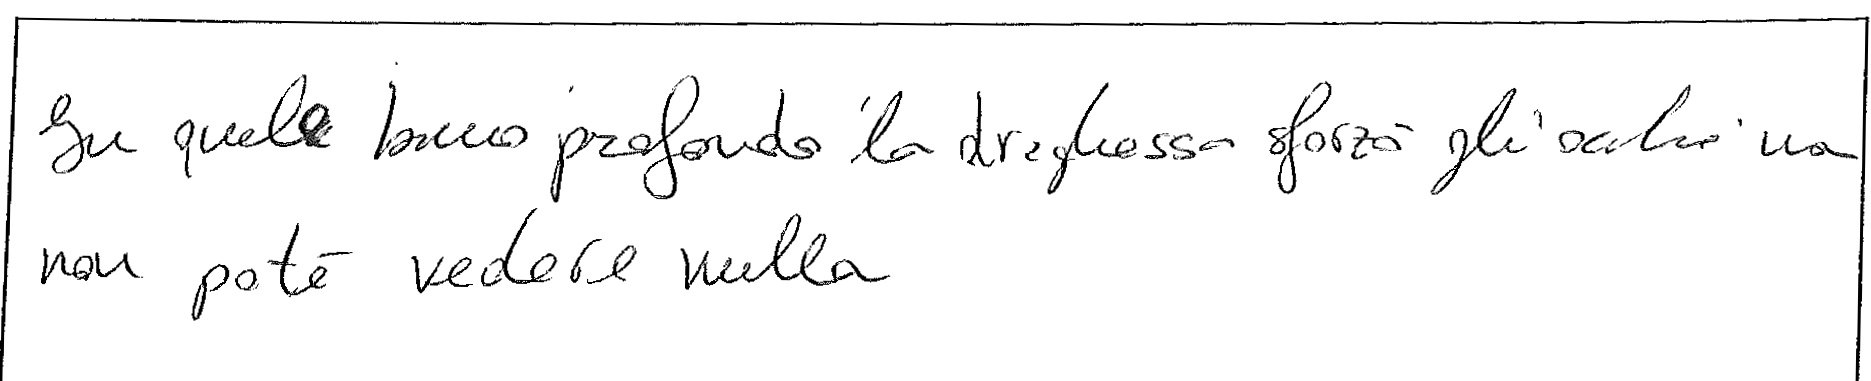 In quel buco profondo la draghessa sforzò gli occhi ma
non poté vedere nulla